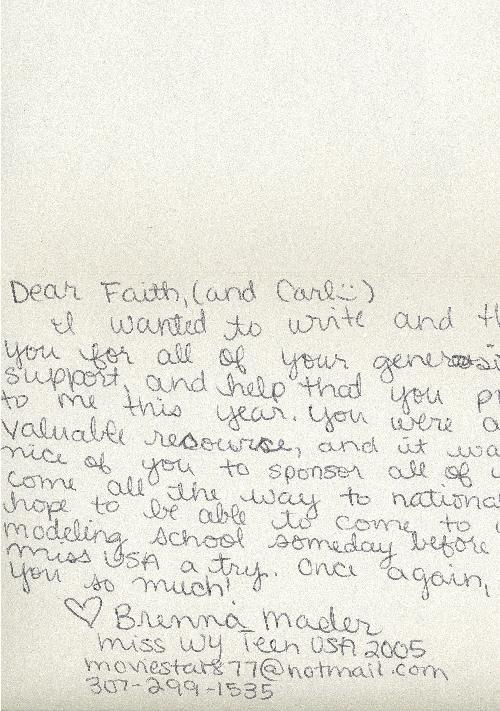 Dear Faith, (and Carl :))
I wanted to write and th
you for all of your generosi
support, and help that you pr
to me this year. You were a
valuable resource, and it wa
nice of you to sponsor all of u
come all the way to nationa
hope to be able to come to
modeling school someday before
Miss USA a try. Once again,
you so much!
♡ Brenna Mader
Miss WY Teen USA 2005
moviestar877@hotmail.com
307-299-1535